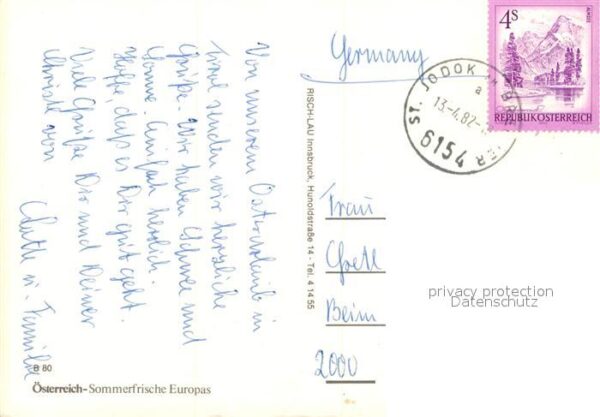 Von unserem Osterurlaub in
Tirol senden wir herzliche
Grüße. Wir haben Schnee und
Sonne. Einfach herrlich.
Hoffe, daß es Dir gut geht.
Viele Grüße Dir und Deiner
von
u. Familie
RISCH-LAU Innsbruck, Hunoldstraße 14 - Tel. 4 14 55
B 80
Österreich-Sommerfrische Europas
Germany
4S
ALMSEE
REPUBLIK ÖSTERREICH
ST. JODOK
a
13.-4.82
6154
Frau
Beim
2000
privacy protection
Datenschutz